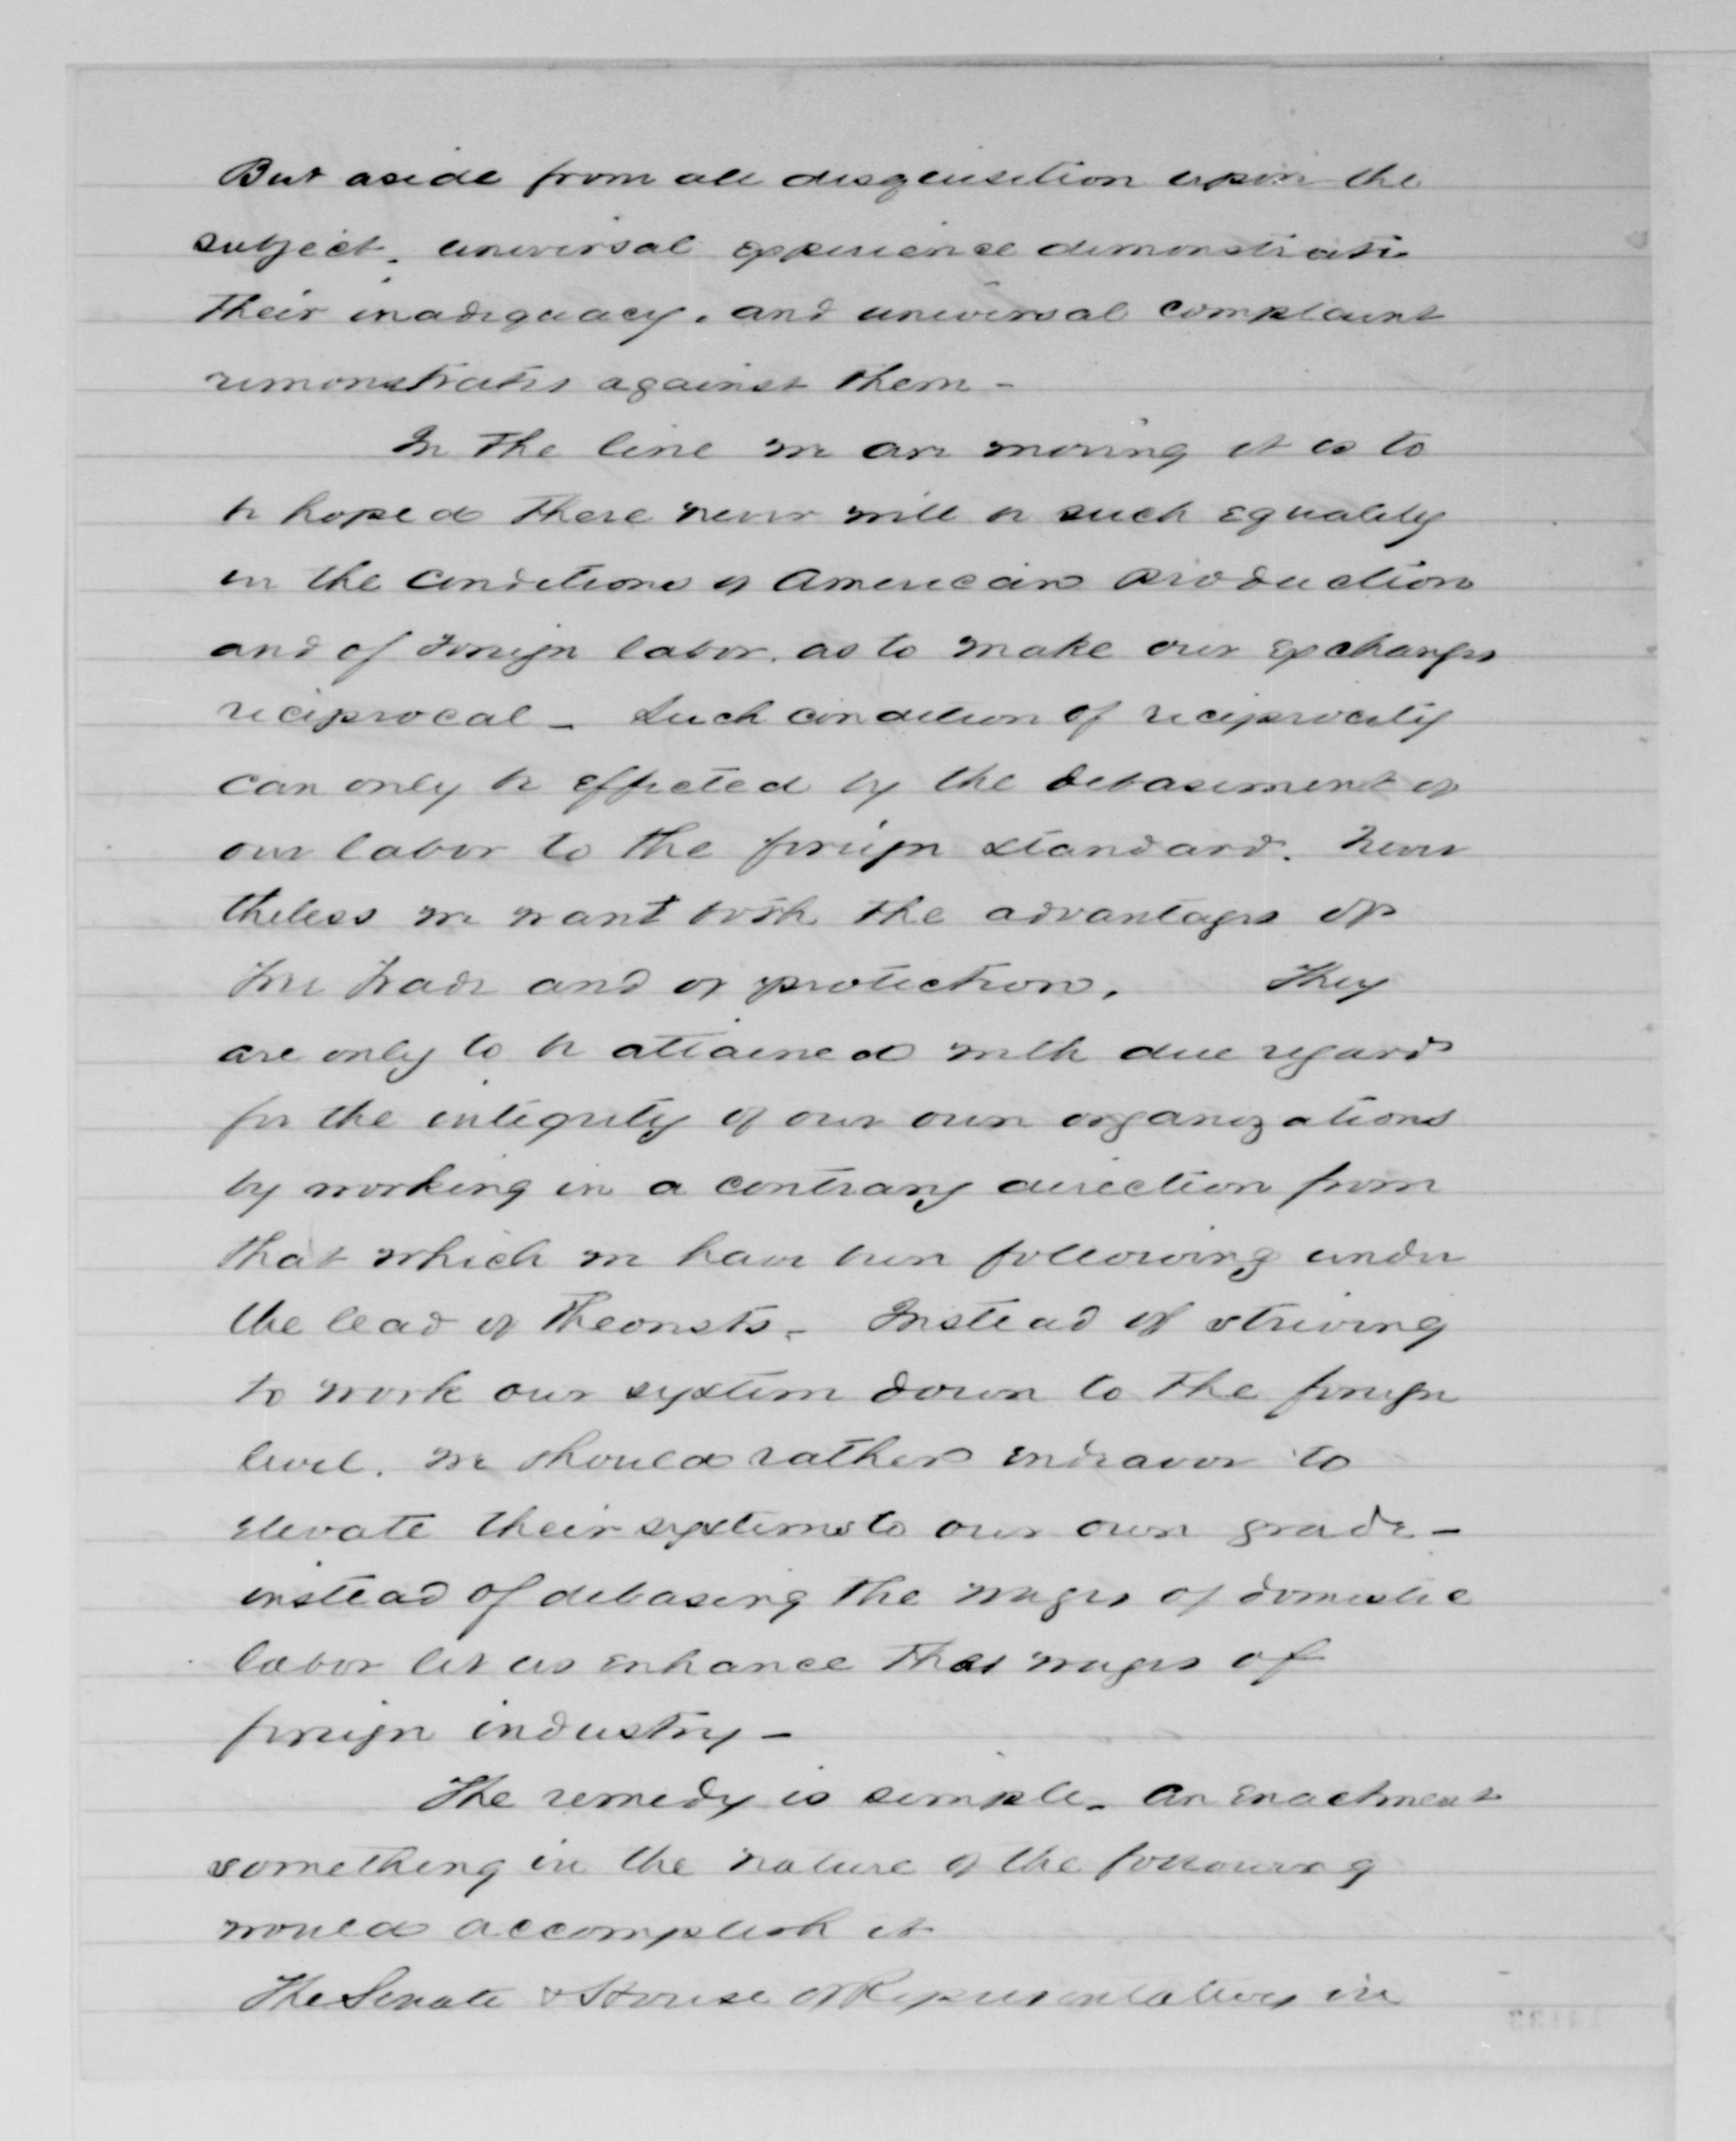 But aside from all disquisition upon the
subject, universal experience demonstrates
their inadequacy, and universal complaint
remonstrates against them -
In the line we are moving it is to
be hoped there never will be such equality
in the conditions of American production
and of foreign labor, as to make our exchanges
reciprocal - Such condition of reciprocity
can only be effected by the debasement of
our labor to the foreign standard. Never
theless we want both the advantages of
free trade and of protection. They
are only to be attained with due regard
for the integrity of our own organizations
by working in a contrary direction from
that which we have been following under
the lead of theorists. Instead of striving
to work our system down to the foreign
level, we should rather endeavor to
elevate their systems to our own grade -
instead of debasing the wages of domestic
labor let us enhance the wages of
foreign industry -
The remedy is simple. An enactment
something in the nature of the following
would accomplish it
The Senate & House of Representatives in